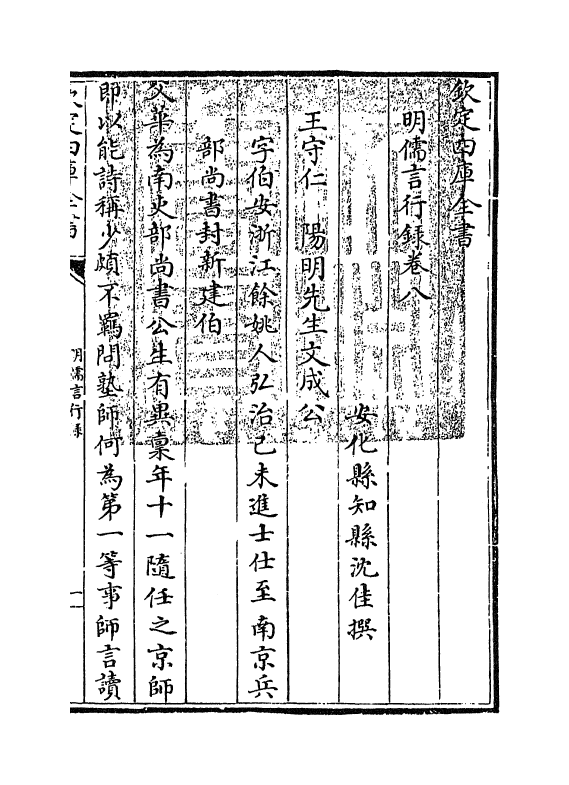 欽定四庫全書
明儒言行録卷八
安化縣知縣沈佳撰
王守仁 陽明先生文成公
字伯安浙江餘姚人弘治己未進士仕至南京兵
部尚書封新建伯
父華為南吏部尚書公生有異稟年十一隨任之京師
即以能詩稱少頗不羈問塾師何為第一等事師言讀
欽定四庫全書
明儒言行録